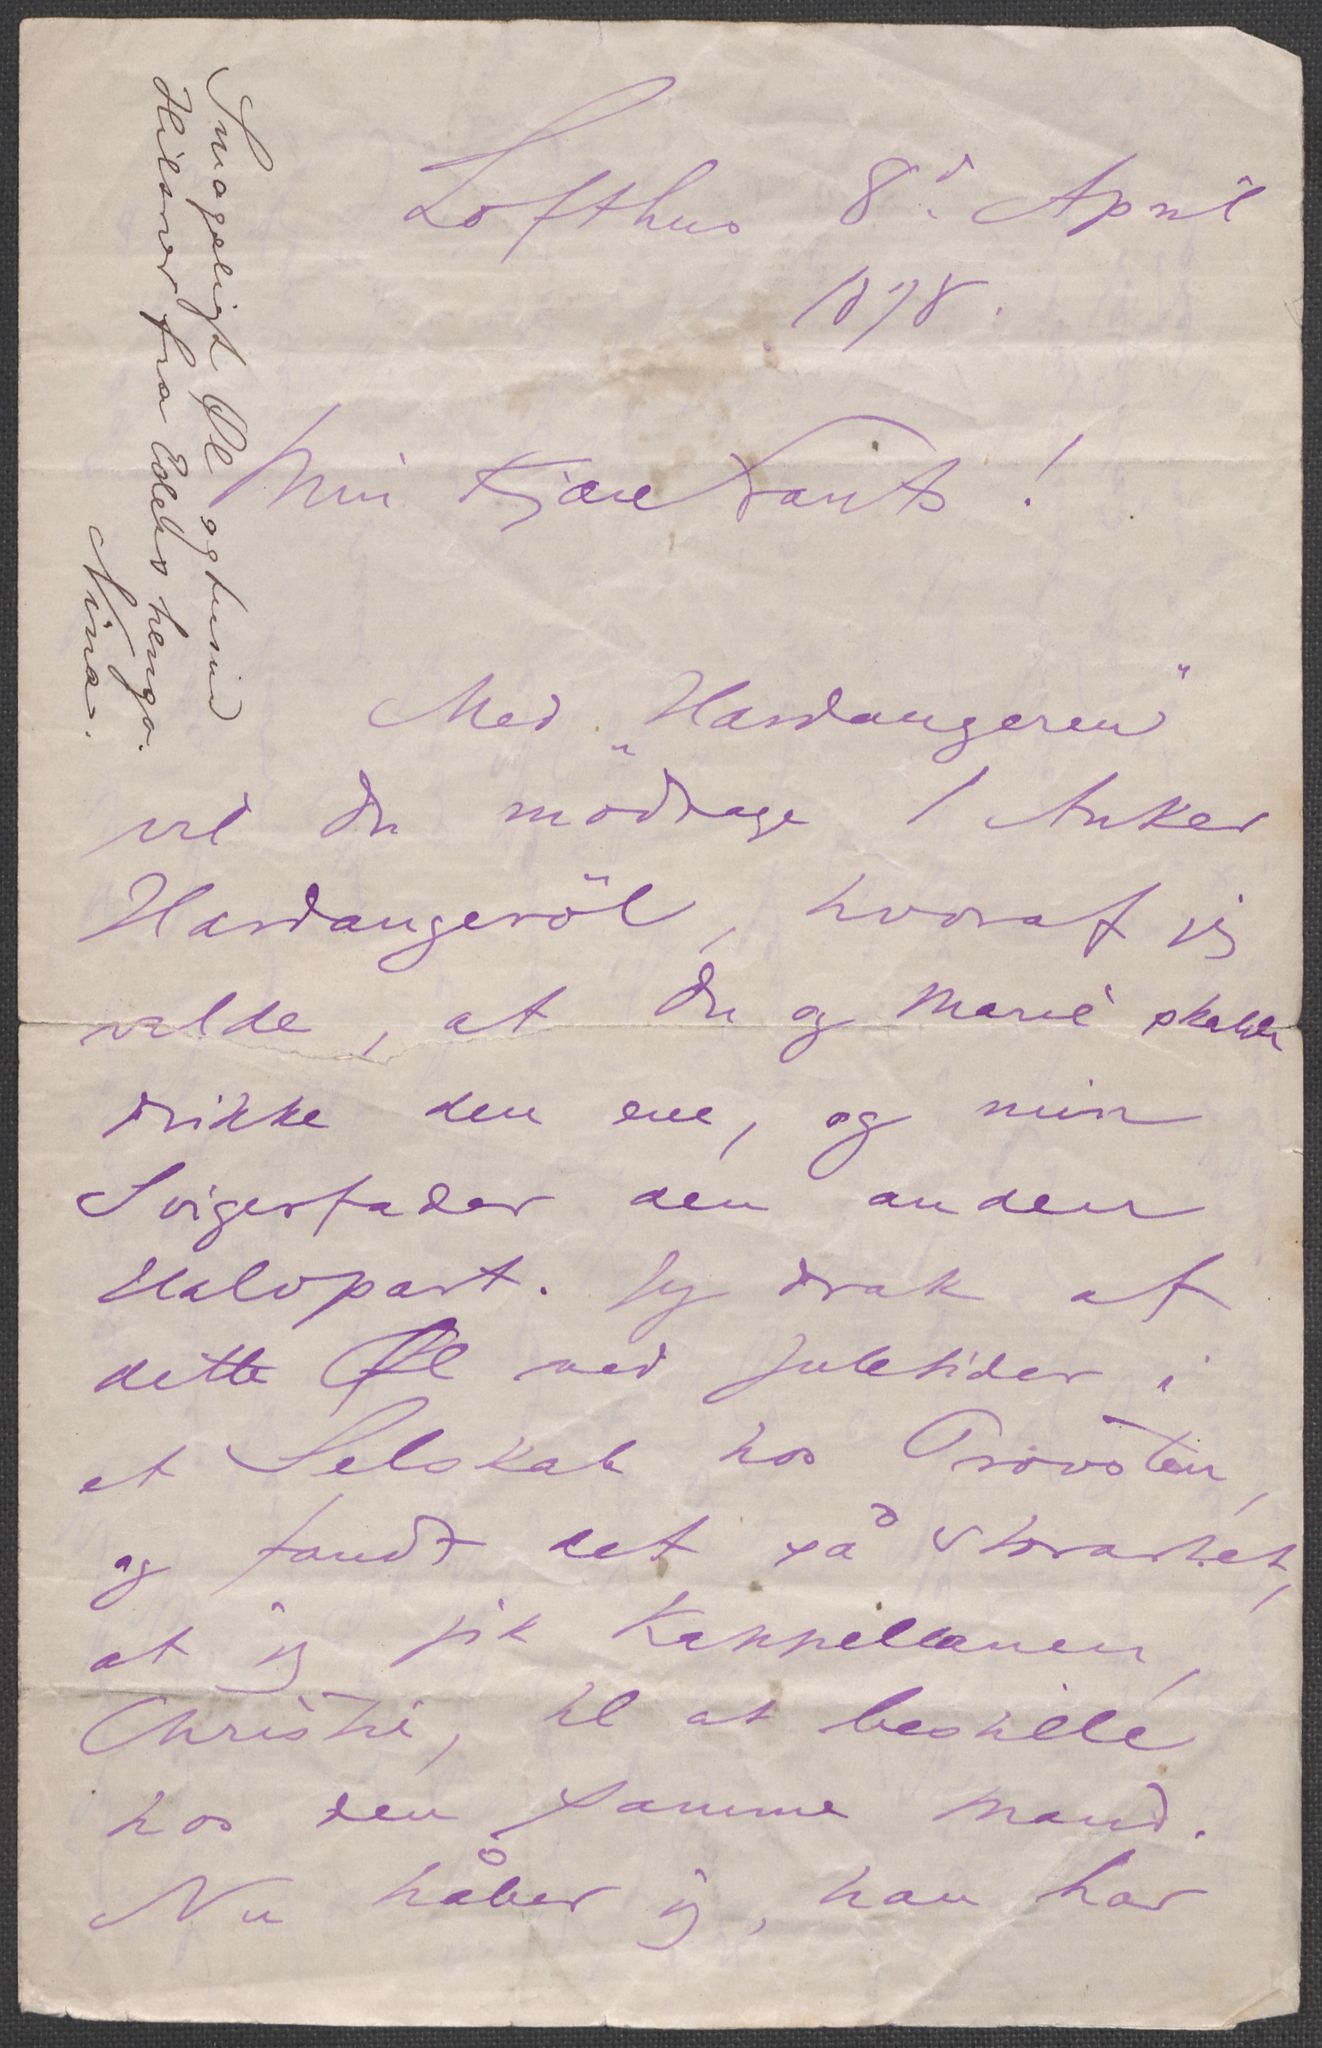 Lofthus 8d April
1878.
Min kjære Frants!
Med „Hardangeren"
vil du modtage 1 Anker
Hardangeröl, hvoraf jeg
vilde, at du og Marie skulde
drikke den ene, og min
Svigerfader den anden
Halvpart. Jeg drak af
dette Øl ved Juletider i
et Selskab hos Provsten,
og fandt det så storartet,
at jeg fik Kappellanen,
Christie, til at bestille
hos den samme Mand.
Nu håber jeg, han har
Smageligt Øl og tusind
Hilsner fra Eders hengo.
Nina.